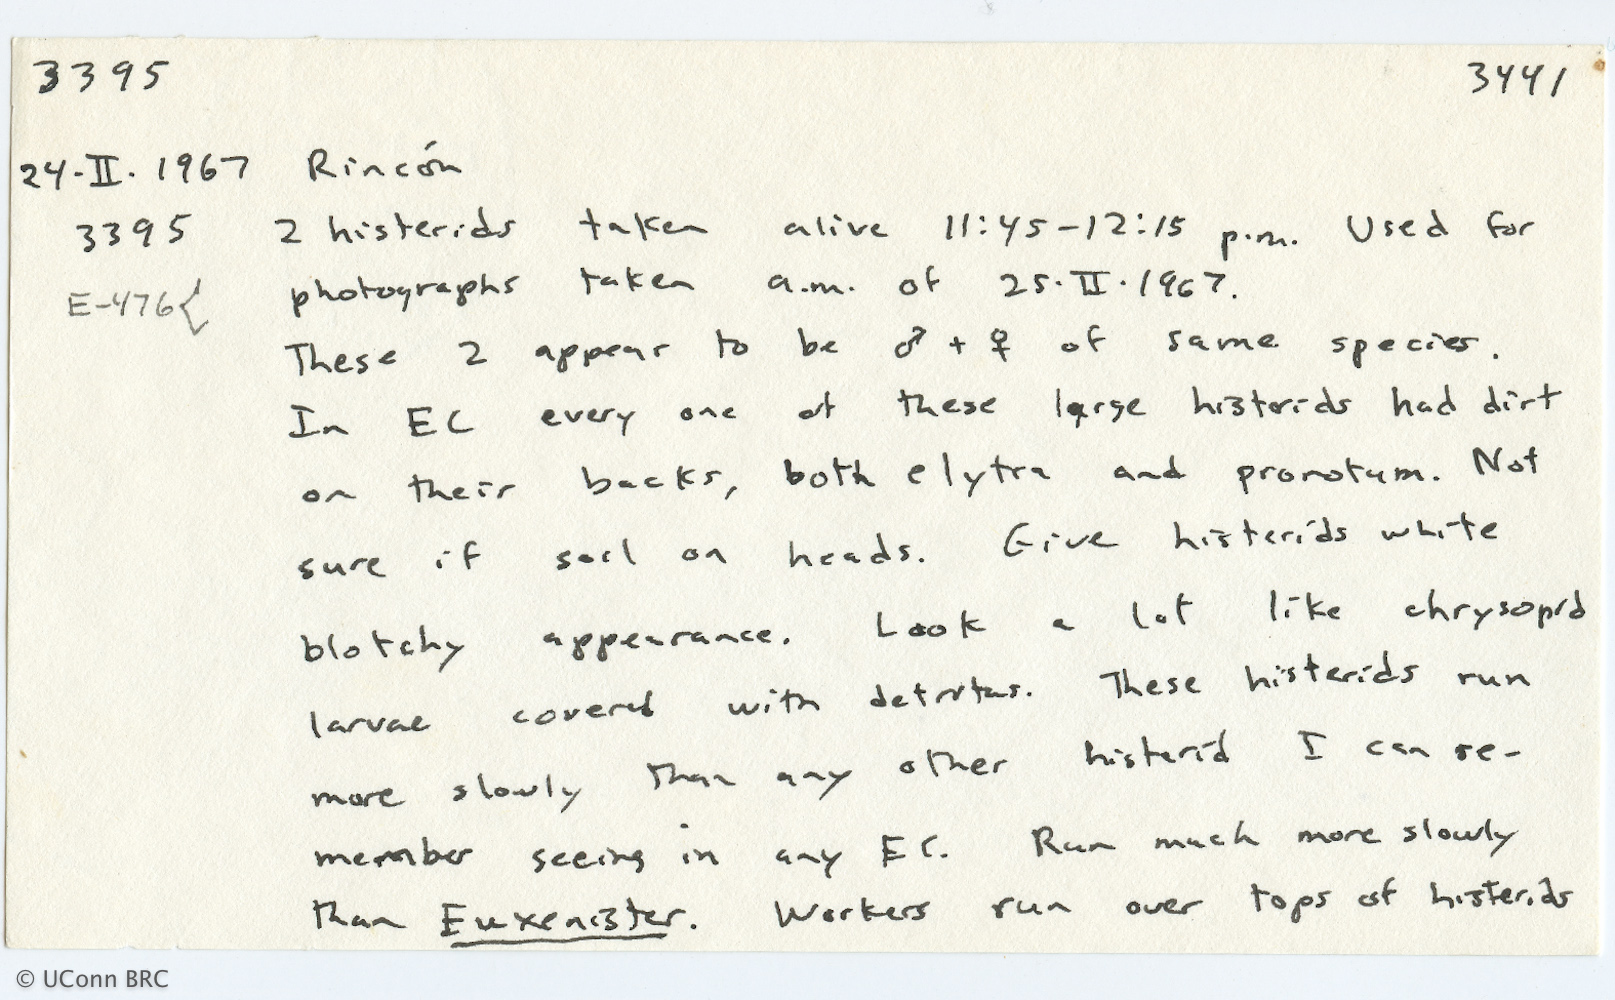 3395 3441
24·II·1967 Rincón
3395 2 histerids taken alive 11:45-12:15 p.m. Used for
E-476{ photographs taken a.m. of 25·II·1967.
These 2 appear to be ♂ + ♀ of same species.
In EC every one of these large histerids had dirt
on their backs, both elytra and pronotum. Not
sure if soil on heads. Give histerids white
blotchy appearance. Look a lot like chrysopid
larvae covered with detritus. These histerids run
more slowly than any other histerid I can re-
member seeing in any EC. Run much more slowly
than Euxenister. Workers run over tops of histerids
© UConn BRC